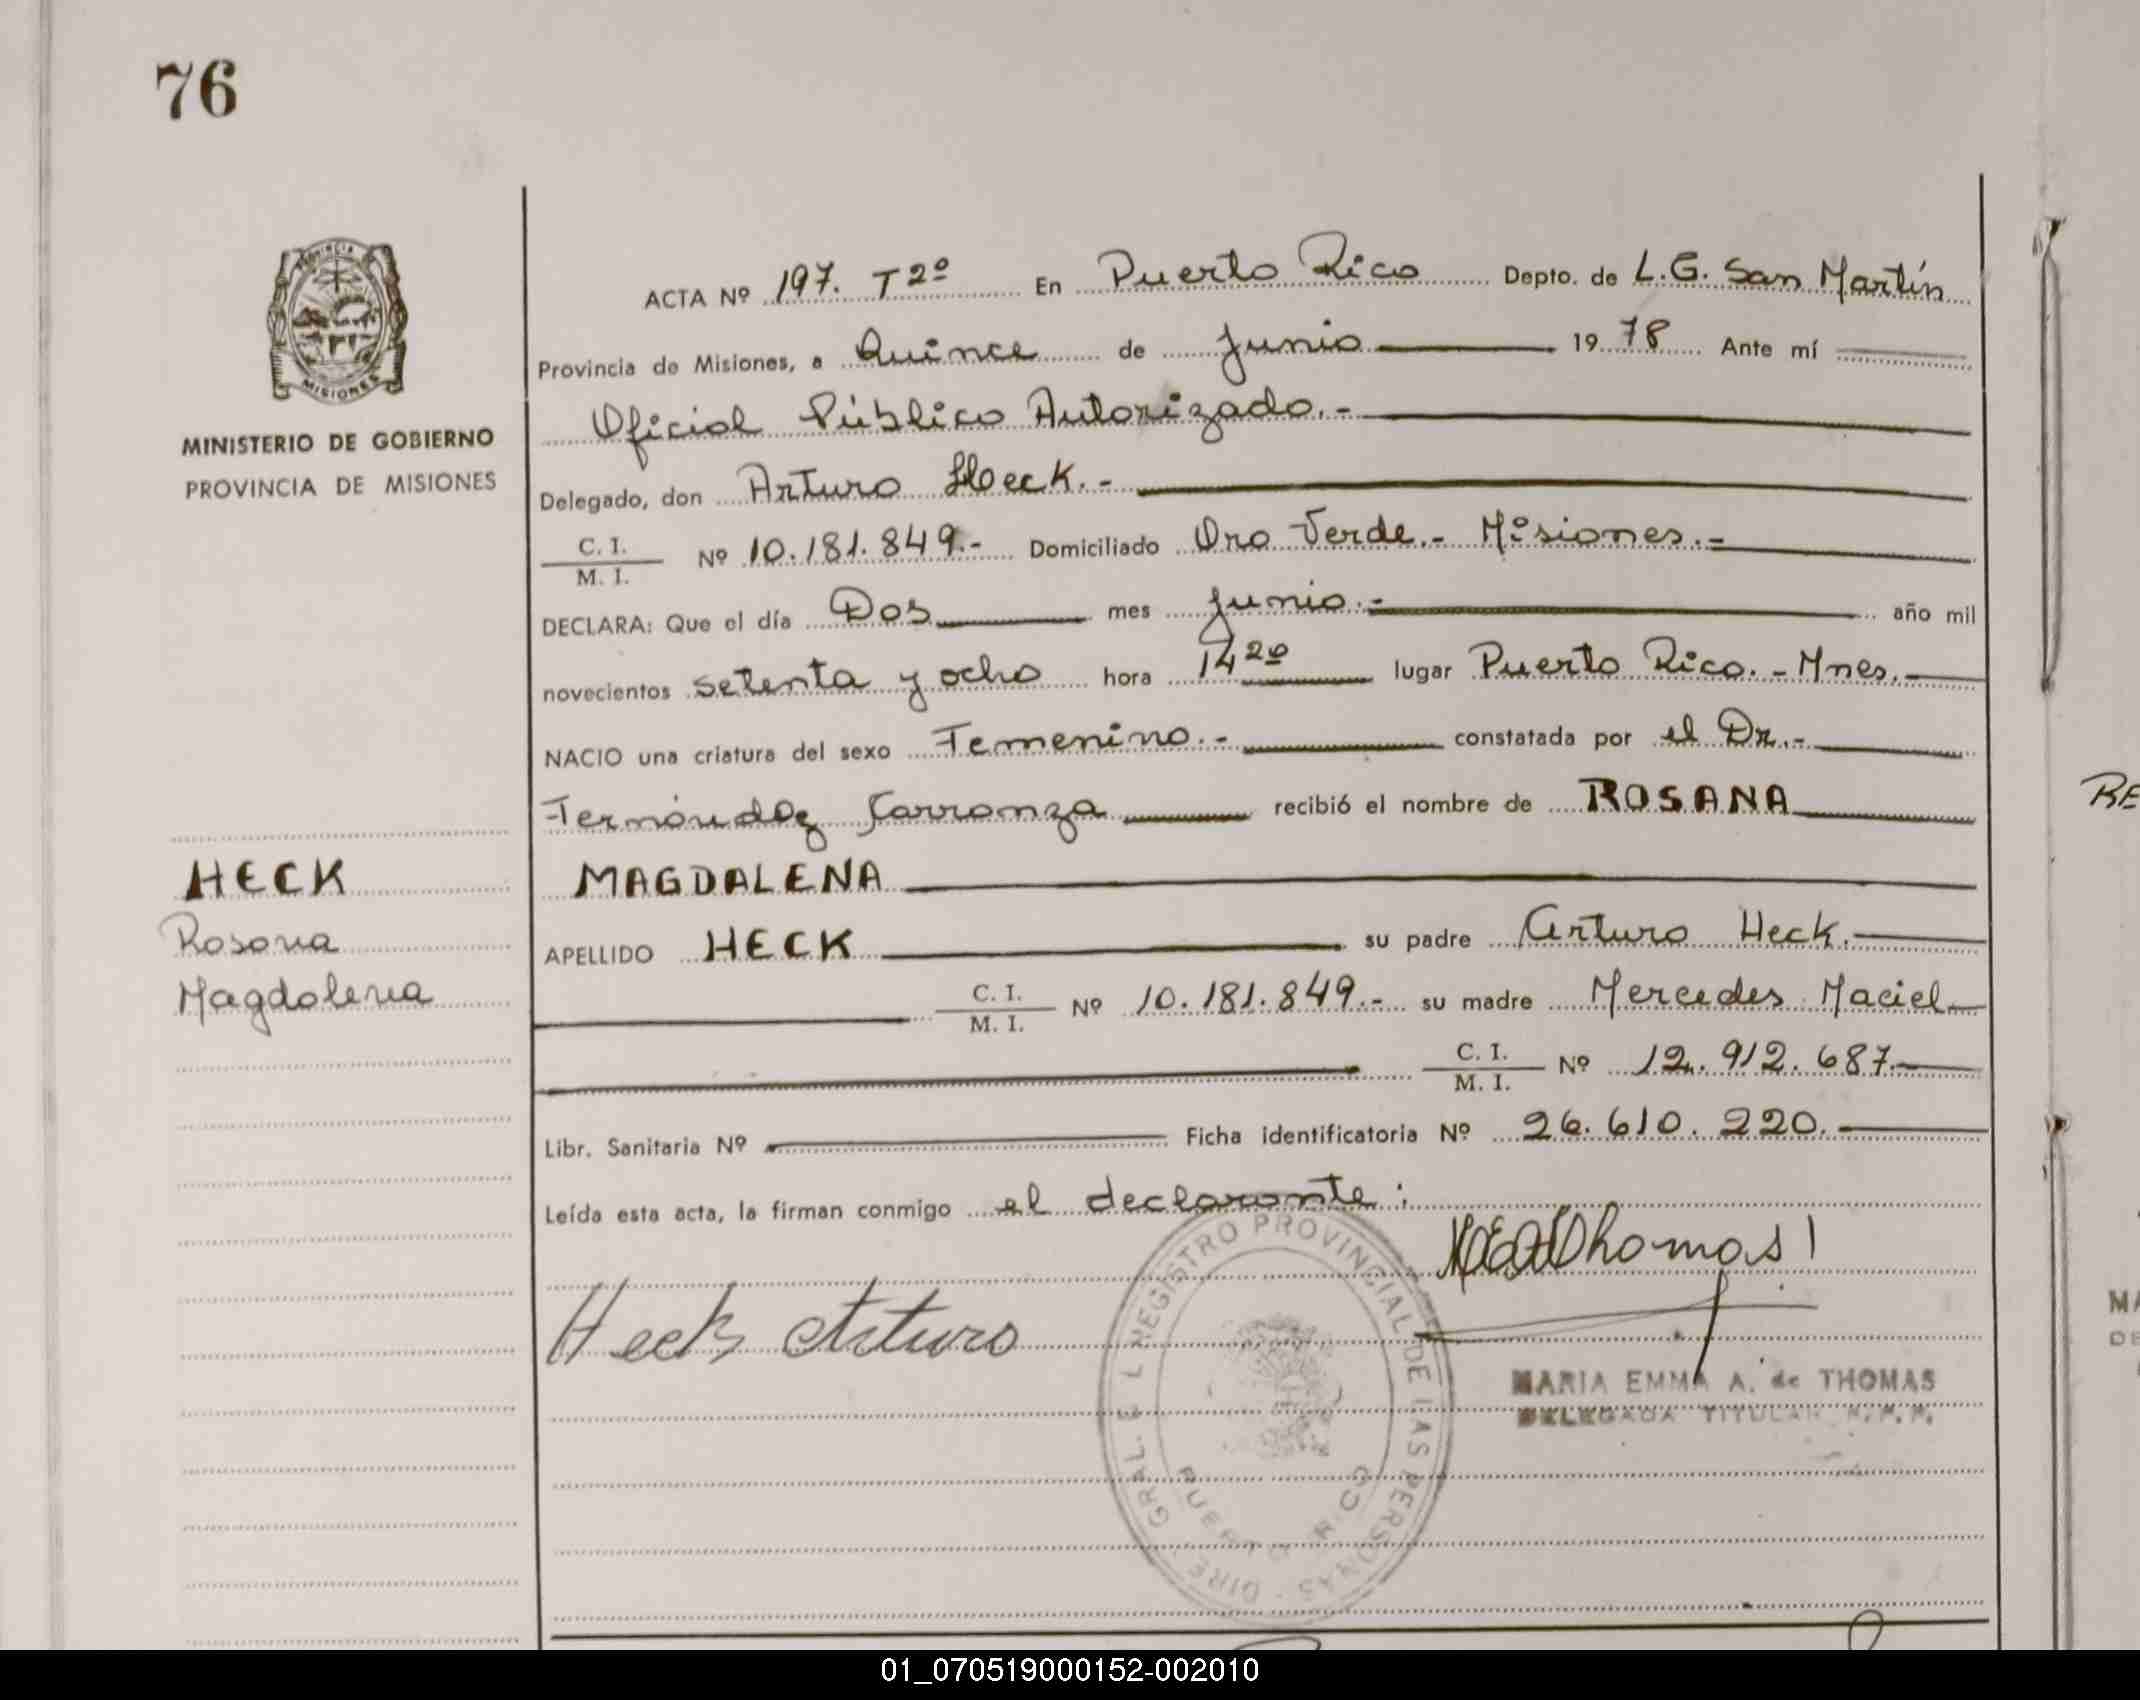 76
PROVINCIA
MISIONES
MINISTERIO DE GOBIERNO
PROVINCIA DE MISIONES
ACTA Nº 197. T2º En Puerto Rico Depto. de L.G. San Martín
Provincia de Misiones, a Quince de Junio 1978 Ante mí
Oficial Público Autorizado.-
Delegado, don Arturo Heck.-
C. I.
M. I.
Nº 10.181.849.- Domiciliado Oro Verde.- Misiones.-
DECLARA: Que el día Dos mes Junio.- año mil
novecientos setenta y ocho hora 14 20 lugar Puerto Rico.- Mnes.-
NACIO una criatura del sexo Femenino.- constatada por el Dr.-
Fernández Carranza recibió el nombre de ROSANA
MAGDALENA
HECK
Rosana
Magdalena
APELLIDO HECK su padre Arturo Heck.
C. I.
M. I.
Nº 10.181.849.- su madre Mercedes Maciel
C. I.
M. I.
Nº 12.912.687
Libr. Sanitaria Nº Ficha identificatoria Nº 26.610.220.
Leída esta acta, la firman conmigo el declarante:
Heck Arturo
Thomas
DIREC. GRAL. DEL REGISTRO PROVINCIAL DE LAS PERSONAS
PUERTO RICO
MARIA EMMA A. de THOMAS
DELEGADA TITULAR R.P.P.
RE
MA
DE
01_070519000152-002010